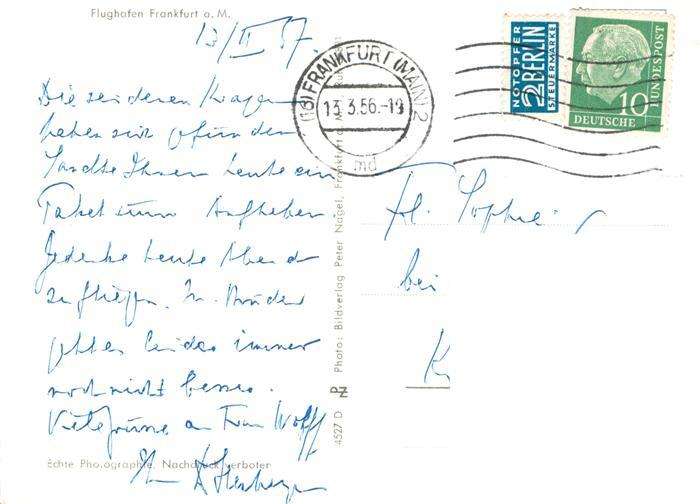 Flughafen Frankfurt a. M.
13/II 57.
Die seidenen Kragen
haben sich gefunden
Sandte Ihnen heute ein
Paket zum Aufheben.
Gedenke heute Abend
zu fliegen. In
geht es leider immer
noch nicht besser.
Viele Grüsse an Frau Wolff
Ihr
Echte Photographie. Nachdruck verboten
4527 D PZ Photo: Bildverlag Peter Nagel, Frankfurt a. M.
(16) FRANKFURT (MAIN) 2
13.3.56.-19
md
NOTOPFER
2 BERLIN
STEUERMARKE
10
DEUTSCHE
BUNDESPOST
Frl. Sophie
bei
K